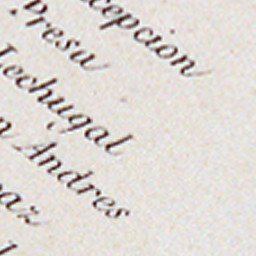 cepcion
Presa
Lechugal
n Andres
az